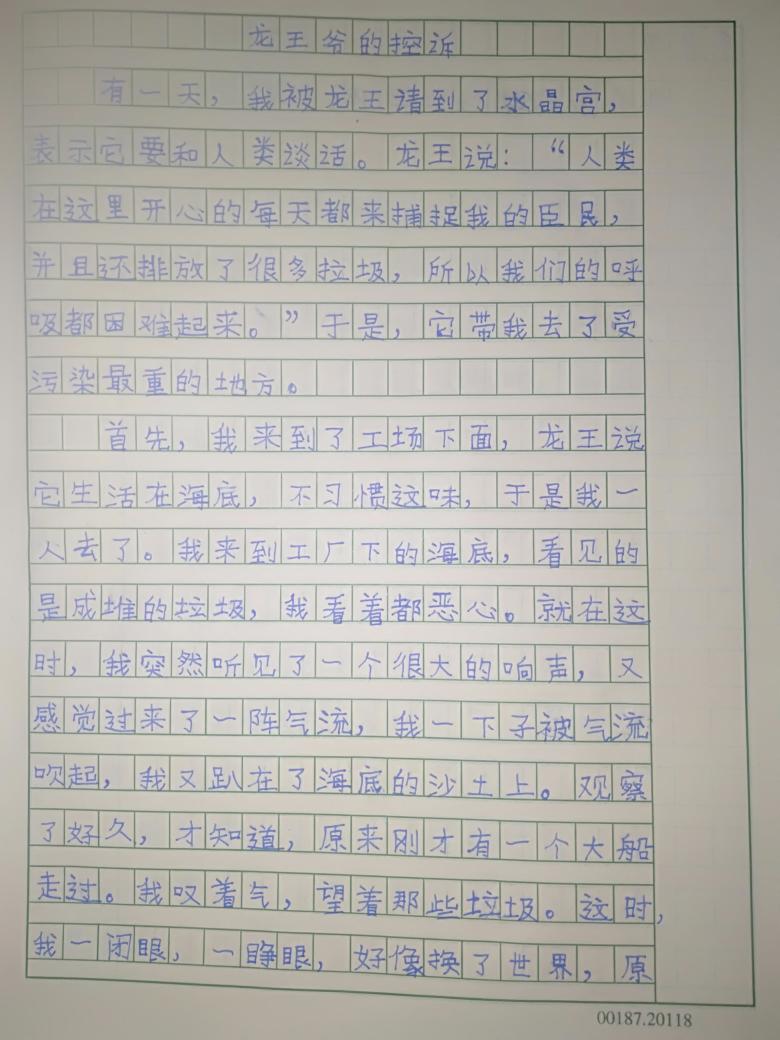 龙王爷的控诉
有一天，我被龙王请到了水晶宫，
表示它要和人类谈话。龙王说：“人类
在这里开心的每天都来捕捉我的臣民，
并且还排放了很多垃圾，所以我们的呼
吸都困难起来。”于是，它带我去了受
污染最重的地方。
首先，我来到了工场下面，龙王说
它生活在海底，不习惯这味，于是我一
人去了。我来到工厂下的海底，看见的
是成堆的垃圾，我看着都恶心。就在这
时，我突然听见了一个很大的响声，又
感觉过来了一阵气流，我一下子被气流
吹起，我又趴在了海底的沙土上。观察
了好久，才知道，原来刚才有一个大船
走过。我叹着气，望着那些垃圾。这时，
我一闭眼，一睁眼，好像换了世界，原
00187.20118